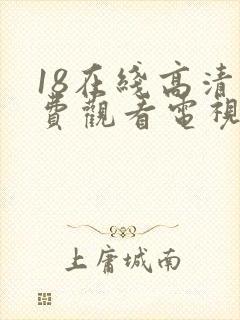 18在綫高清
費觀看電視
上庸城南